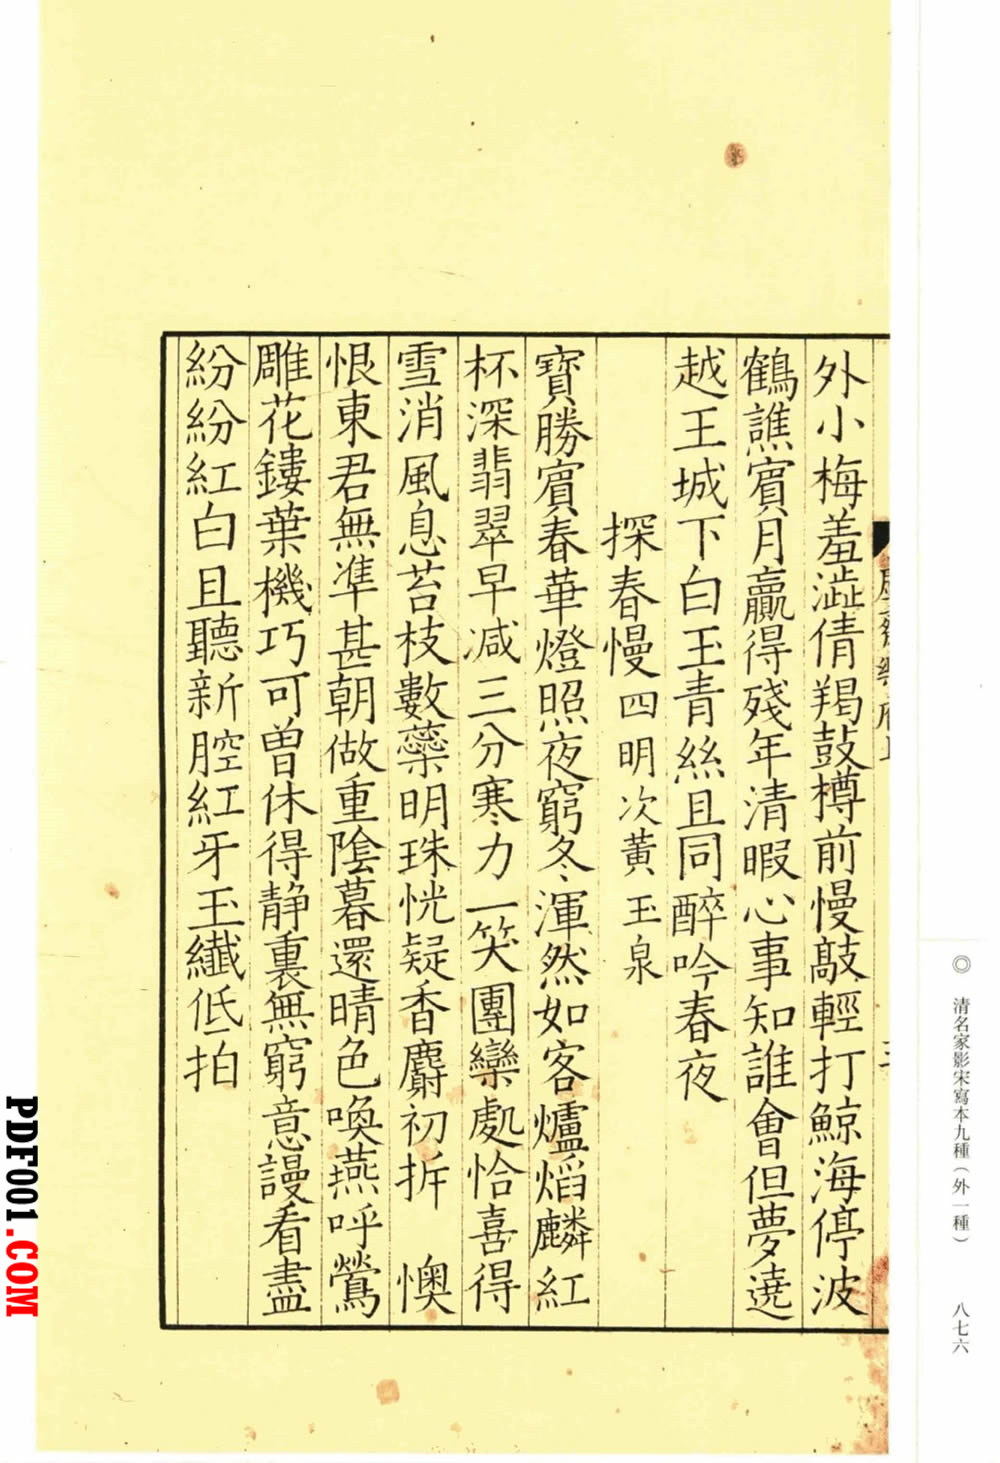 外小梅羞澁倩羯鼓樽前慢敲輕打鯨海停波
鶴譙賓月贏得殘年清暇心事知誰會但夢遶
越王城下白玉青絲且同醉吟春夜
探春慢四明次黃玉泉
寶勝賓春華燈照夜窮冬渾然如客爐焰麟紅
杯深翡翠早减三分寒力一笑團欒處恰喜得
雪消風息苔枝數蘂明珠恍疑香麝初拆　懊
恨東君無準甚朝做重陰暮還晴色喚燕呼鶯
雕花鏤葉機巧可曾休得静裏無窮意謾看盡
紛紛紅白且聽新腔紅牙玉纖低拍
◎ 清名家影宋寫本九種（外一種） 八七六
PDF001.COM